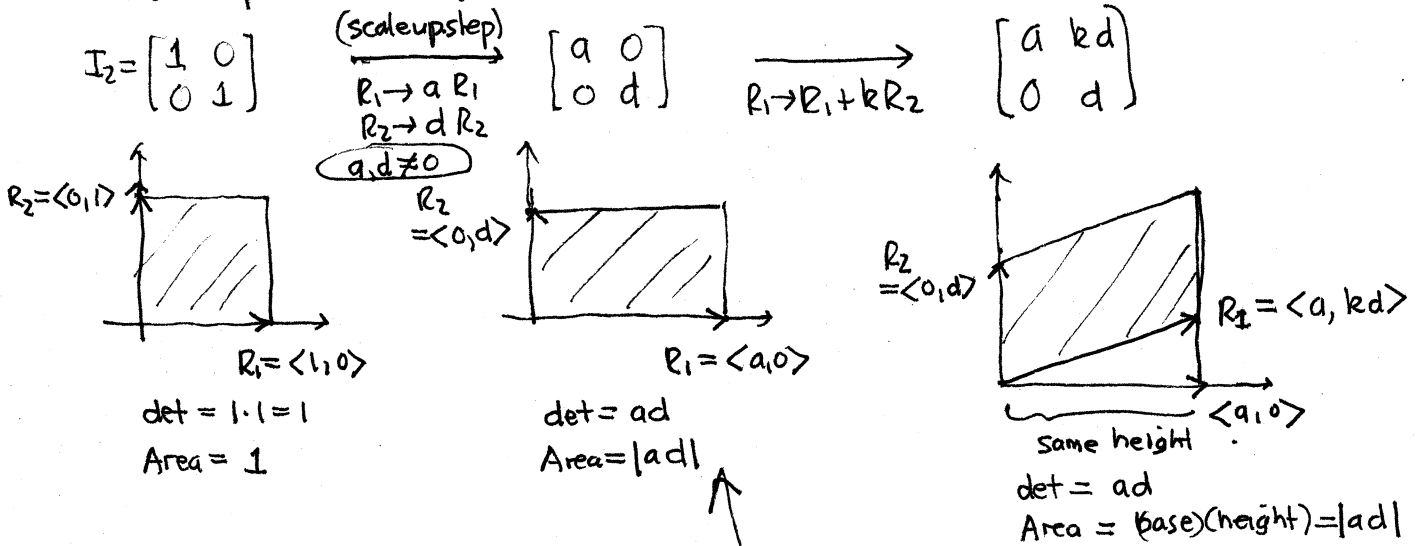 I₂ = [1 0
0 1]
(scaleup step)
R₁→ a R₁
R₂→ d R₂
a,d≠0
[a 0
0 d]
R₁→R₁+kR₂
[a kd
0 d]
R₂=<0,1>
R₁=<1,0>
det = 1·1=1
Area = 1
R₂
=<0,d>
R₁=<a,0>
det= ad
Area=|ad|
R₂
=<0,d>
R₁=<a, kd>
<a,0>
same height
det= ad
Area = (base)(height)=|ad|